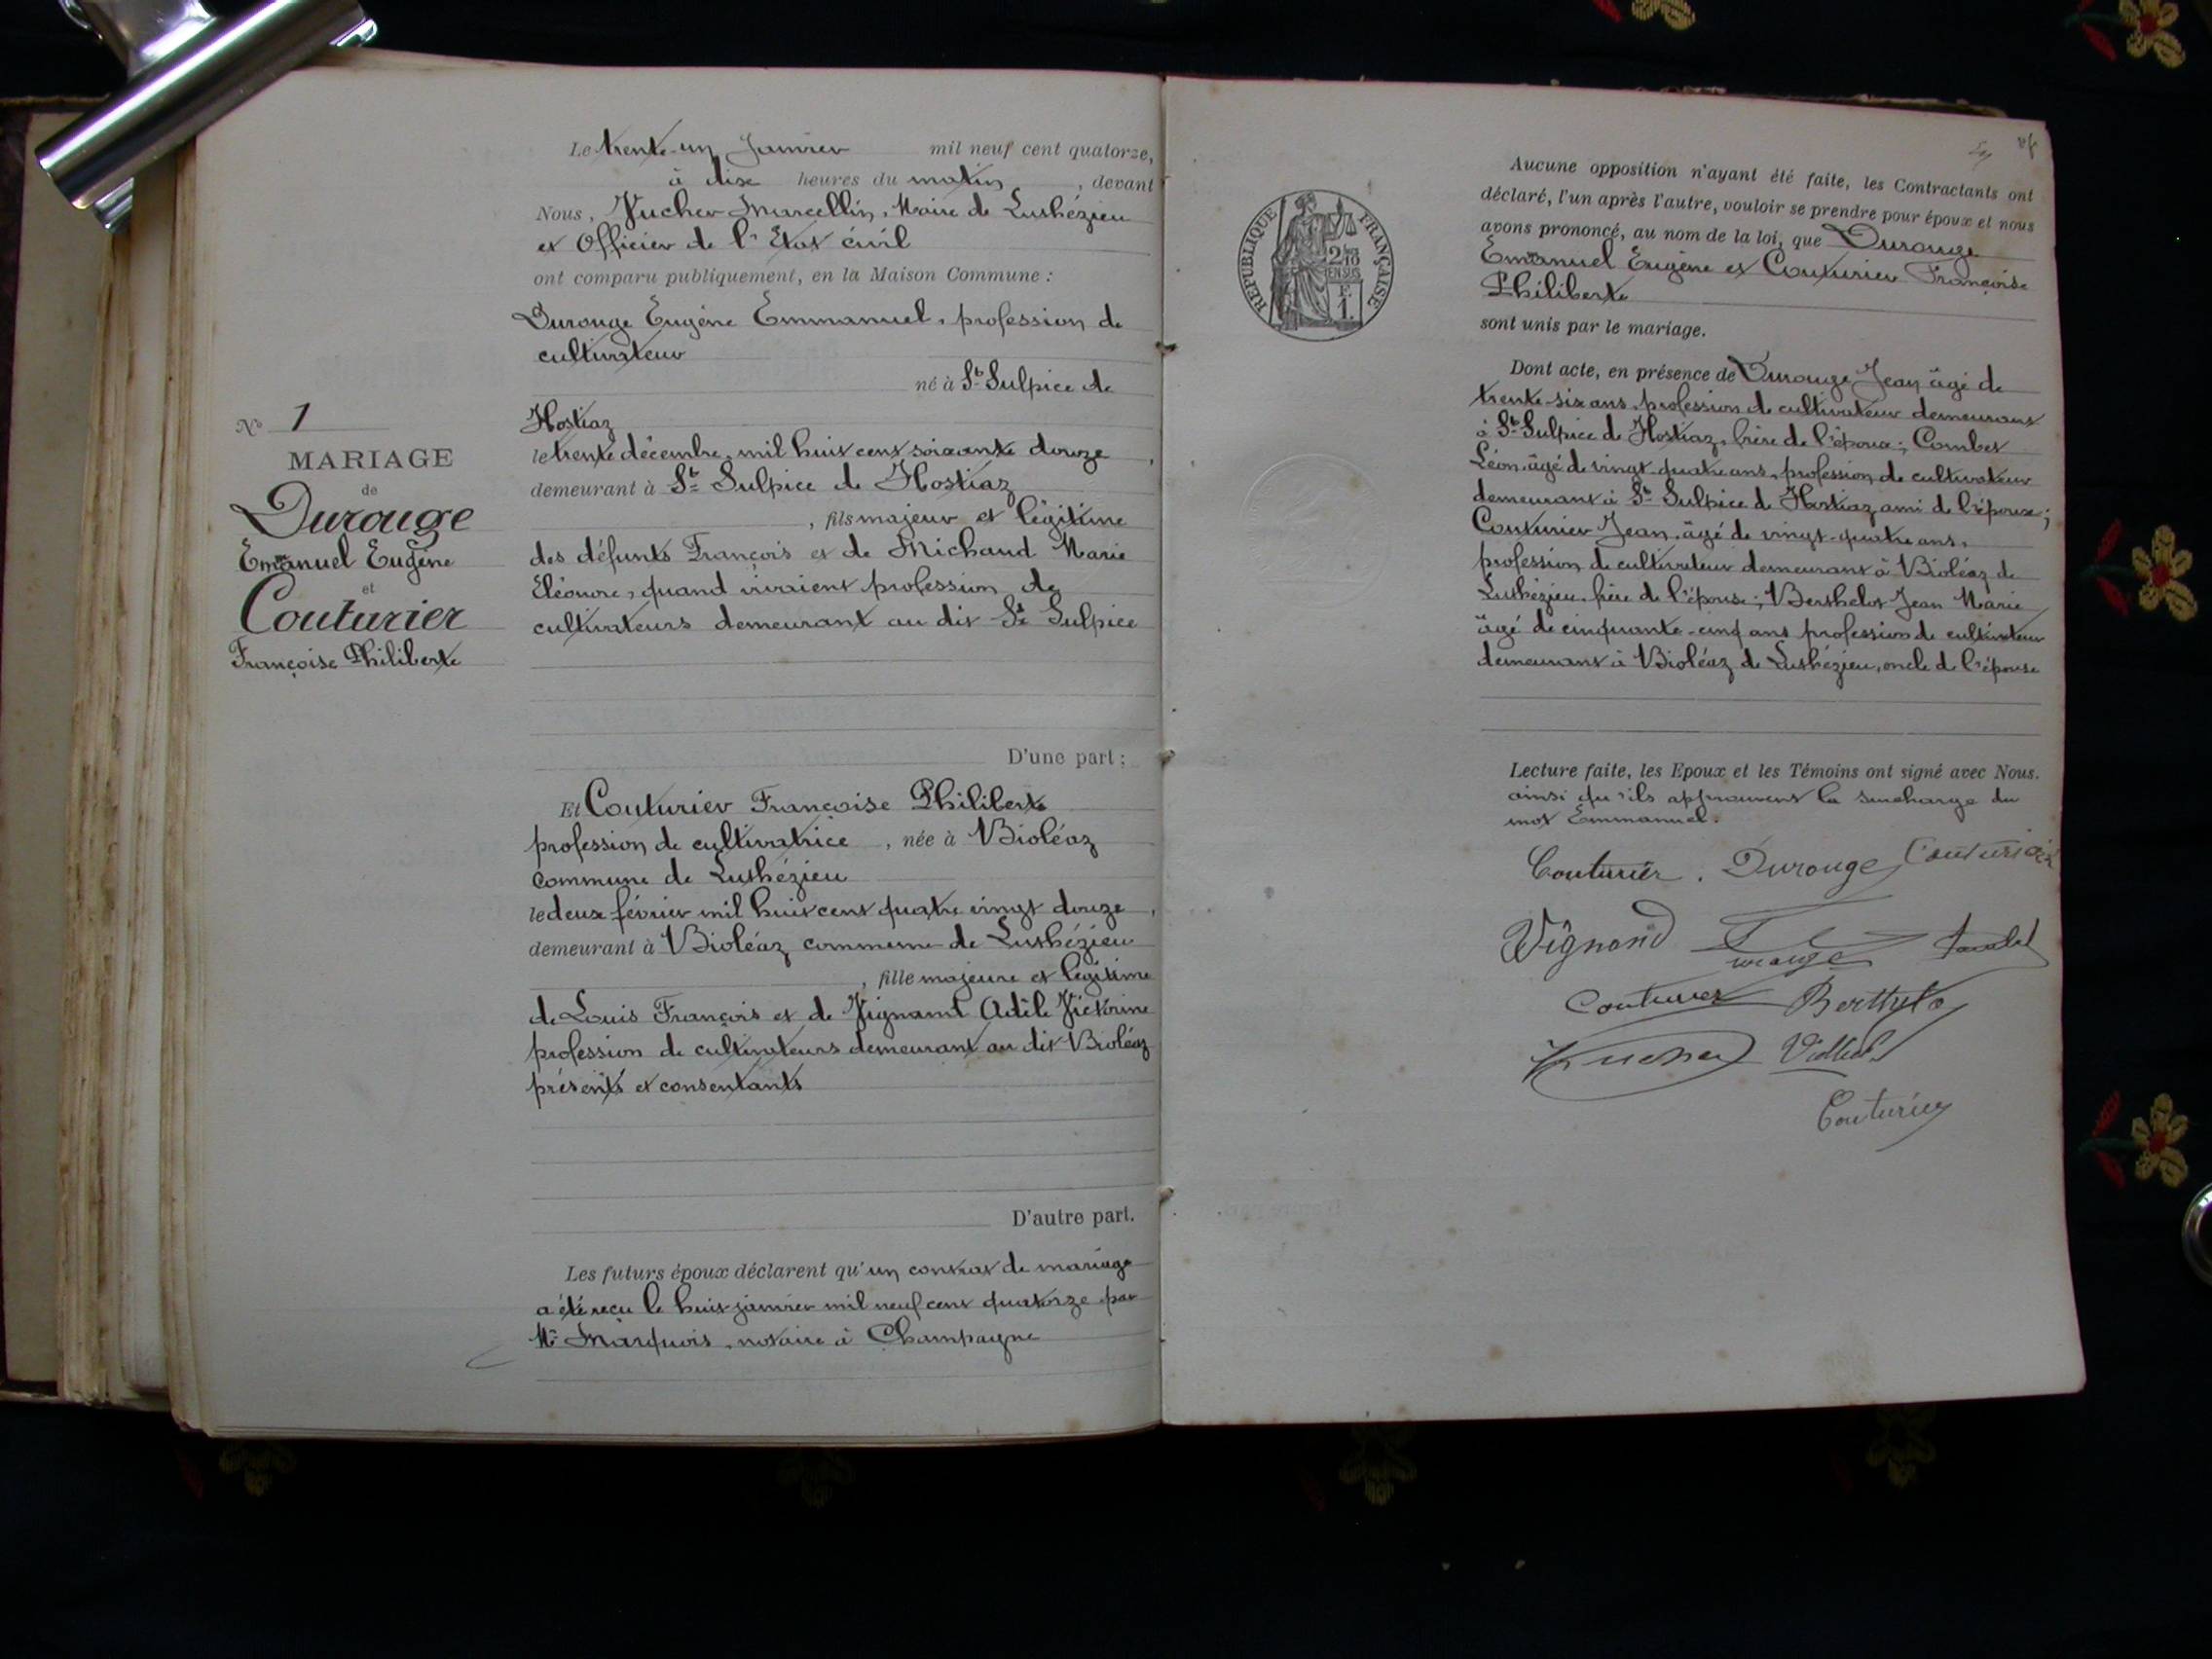 Le trente-un Janvier mil neuf cent quatorze,
à dix heures du matin, devant
Nous, Vucher Marcellin, Maire de Luthézieu
et Officier de l'Etat civil
ont comparu publiquement, en la Maison Commune :
Durouge Eugène Emmanuel, profession de
cultivateur
né à St Sulpice de
Hostiaz
le trente décembre, mil huit cent soixante douze,
demeurant à St Sulpice de Hostiaz
, fils majeur et légitime
des défunts François et de Michaud Marie
Eléonore, quand vivaient profession de
cultivateurs demeurant au dit St Sulpice
No 1
MARIAGE
de
Durouge
Emanuel Eugène
et
Couturier
Françoise Philiberte
D'une part ;
Et Couturier Françoise Philiberte
profession de cultivatrice, née à Bioléaz
commune de Luthézieu
le deux février mil huit cent quatre vingt douze,
demeurant à Bioléaz commune de Luthézieu
, fille majeure et légitime
de Louis François et de Vignand Adèle Victorine
profession de cultivateurs demeurant au dit Bioléaz
présents et consentants
D'autre part.
Les futurs époux déclarent qu'un contrat de mariage
a été reçu le huit janvier mil neuf cent quatorze par
Me Marquois, notaire à Champagne
REPUBLIQUE FRANÇAISE
2/10
EN SUS
F.
1.
Aucune opposition n'ayant été faite, les Contractants ont
déclaré, l'un après l'autre, vouloir se prendre pour époux et nous
avons prononcé, au nom de la loi, que Durouge
Emanuel Eugène et Couturier Françoise
Philiberte
sont unis par le mariage.
Dont acte, en présence de Durouge Jean âgé de
trente-six ans, profession de cultivateur demeurant
à St Sulpice de Hostiaz, frère de l'époux ; Combet
Léon, âgé de vingt-quatre ans, profession de cultivateur
demeurant à St Sulpice de Hostiaz ami de l'époux ;
Couturier Jean, âgé de vingt-quatre ans,
profession de cultivateur demeurant à Bioléaz de
Luthézieu, frère de l'épouse ; Berthelot Jean Marie
âgé de cinquante-cinq ans profession de cultivateur
demeurant à Bioléaz de Luthézieu, oncle de l'épouse
Lecture faite, les Epoux et les Témoins ont signé avec Nous.
ainsi qu'ils approuvent la surcharge du
mot Emmanuel.
Couturier. Durouge Couturier
Vignand Durouge
Couturier Berthelo
Vucher
Couturier